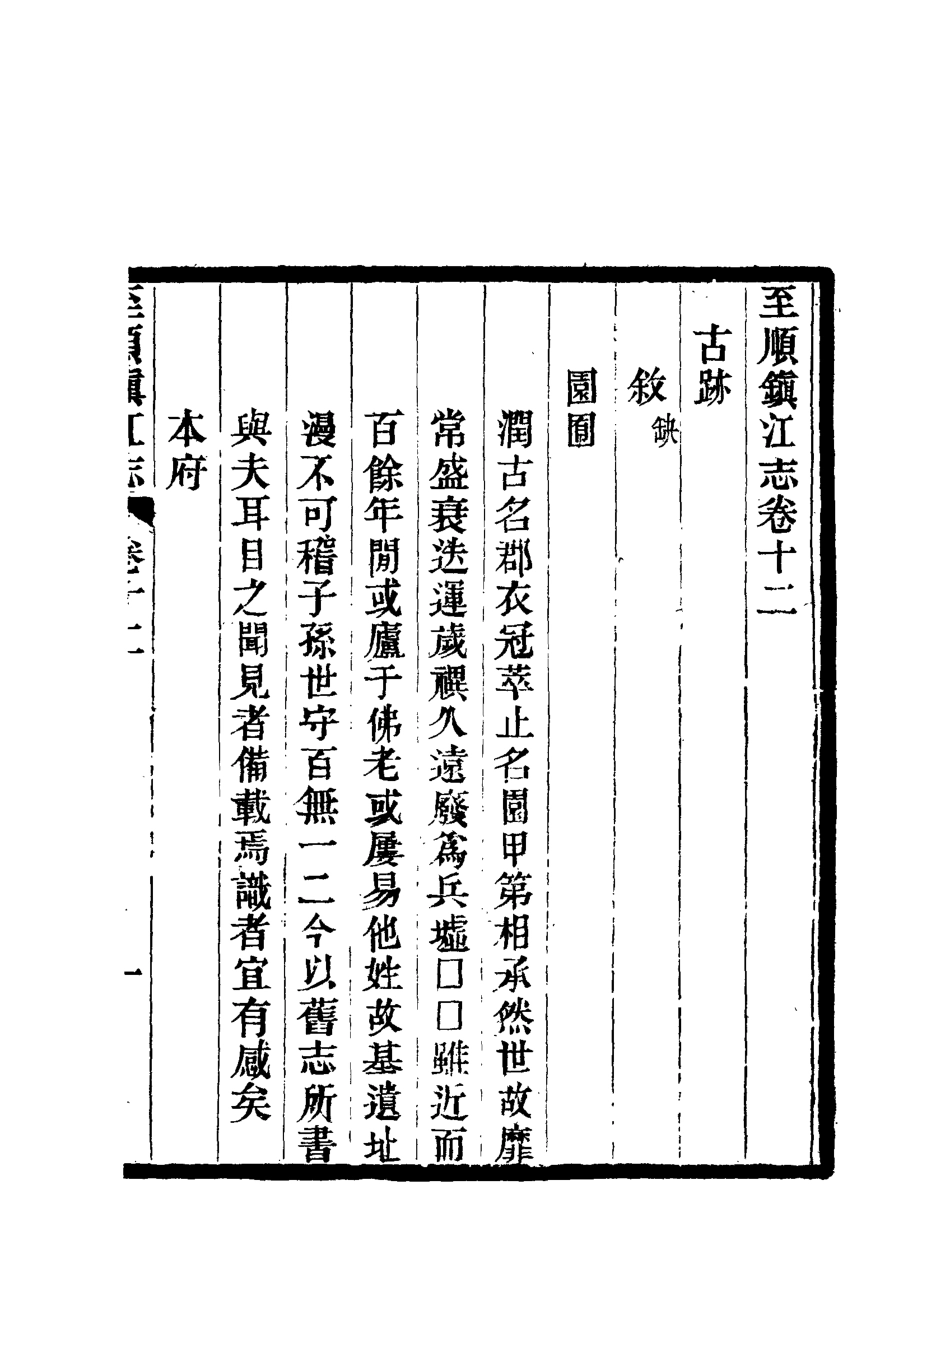 至順鎭江志卷十二
古跡
敘缺
園圃
潤古名郡衣冠萃止名園甲第相承然世故靡
常盛衰迭運歲禩久遠廢爲兵墟□□雖近而
百餘年閒或廬于佛老或屢易他姓故基遺址
漫不可稽子孫世守百無一二今以舊志所書
與夫耳目之聞見者備載焉識者宜有感矣
本府
至順鎭江志 卷十二 一